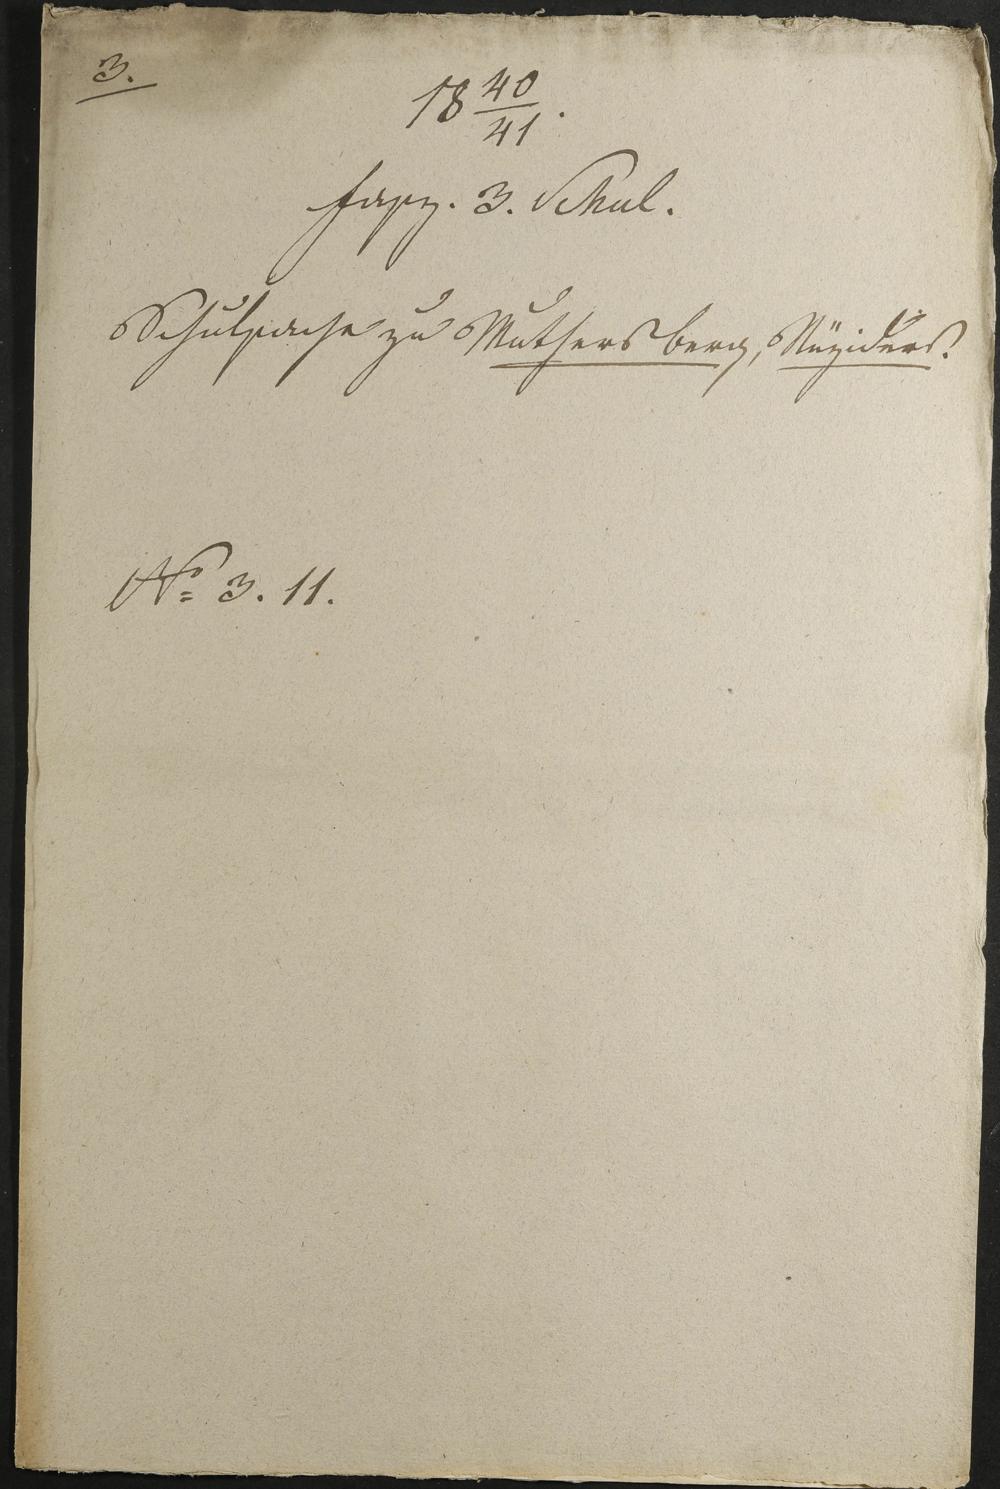 3.
18 40/41.
Fasz. 3. Schul.
Schulsache zu Muthersberg, Nüziders.
No 3. 11.